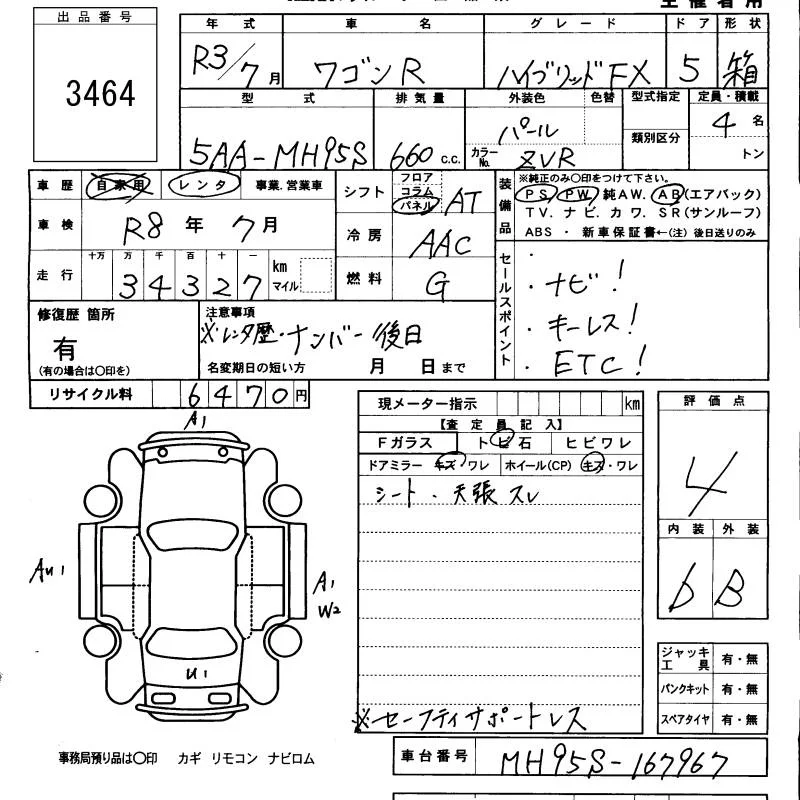 出品番号
3464
年式 車名 グレード ドア 形状
R3/7月 ワゴンR ハイブリッドFX 5 箱
型式 排気量 外装色 色替 型式指定 定員・積載
5AA-MH95S 660 c.c. パール 類別区分 4名
カラーNo. ZVR トン
車歴 自家用 レンタ 事業.営業車
車検 R8年 7月
走行 十万 万 千 百 十 一
34327 km マイル
シフト フロア コラム パネル AT
冷房 AAC
燃料 G
装備品
※純正のみ〇印をつけて下さい。
PS. PW. 純AW. AB(エアバック)
TV. ナビ. カワ. SR(サンルーフ)
ABS ・ 新車保証書←(注) 後日送りのみ
セールスポイント
・ナビ!
・キーレス!
・ETC!
修復歴 箇所
有
(有の場合は〇印を)
注意事項
※レンタ歴・ナンバー後日
名変期日の短い方 月 日まで
リサイクル料 6470円
現メーター指示 km
【査定員記入】
Fガラス トビ石 ヒビワレ
ドアミラー キズ・ワレ ホイール(CP) キズ・ワレ
シート・天張スレ
※セーフティサポートレス
評価点
4
内装 外装
b B
ジャッキ 工具 有・無
パンクキット 有・無
スペアタイヤ 有・無
A1
AU1
A1
W2
U1
事務局預り品は〇印 カギ リモコン ナビロム
車台番号 MH95S-167967